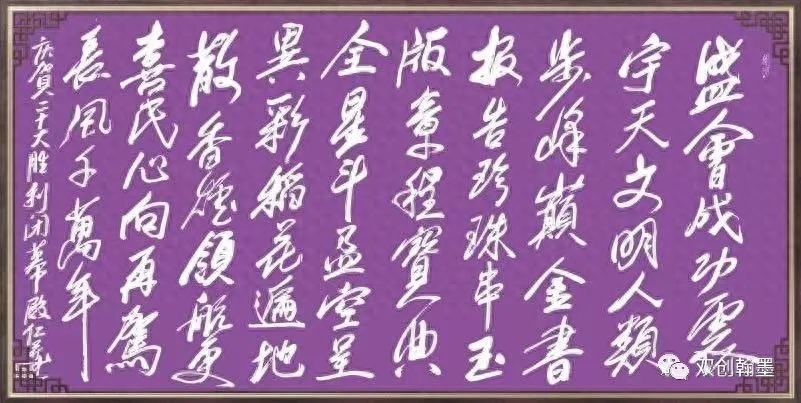 盛會成功雲
宇天文明人類
步峰巔金書
报告珍珠串玉
版章程寶典
全星斗盈空呈
異彩稻花遍地
散香煙領航更
喜民心向再駕
長風千萬年
庆賀二十大胜利闭幕 殷仁
双创翰墨